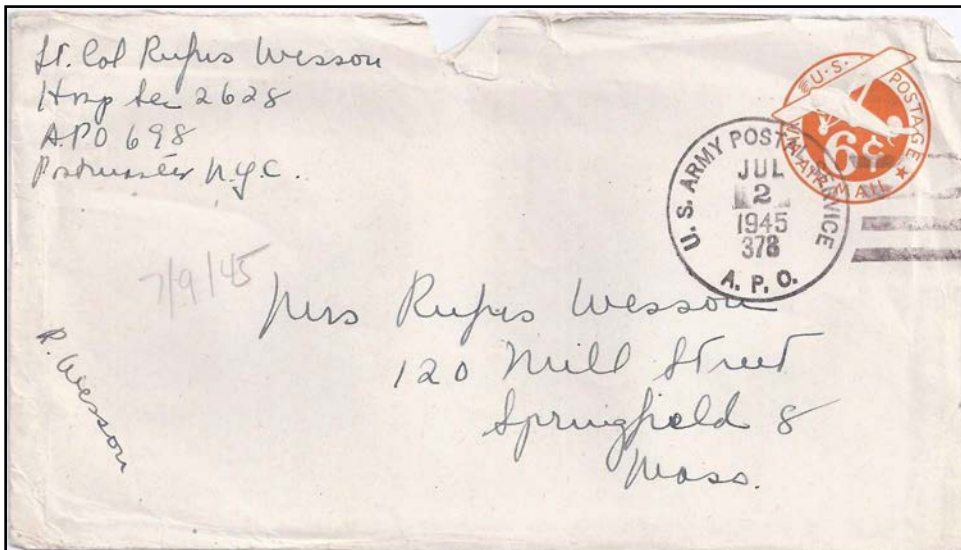 Lt. Col Rufus Wesson
Hosp Sec 2628
A.P.O 698
Postmaster N.Y.C.
U.S. POSTAGE
6¢
VIA AIR MAIL
U. S. ARMY POSTAL SERVICE
JUL
2
1945
378
A. P. O.
7/9/45
Mrs Rufus Wesson
120 Mill Street
Springfield 8
Mass.
R. Wesson